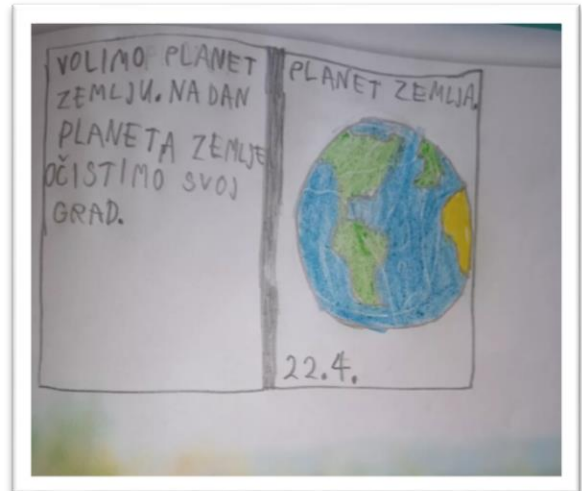 VOLIMO PLANET
ZEMLJU. NA DAN
PLANETA ZEMLJE
OČISTIMO SVOJ
GRAD.
PLANET ZEMLJA
22.4.